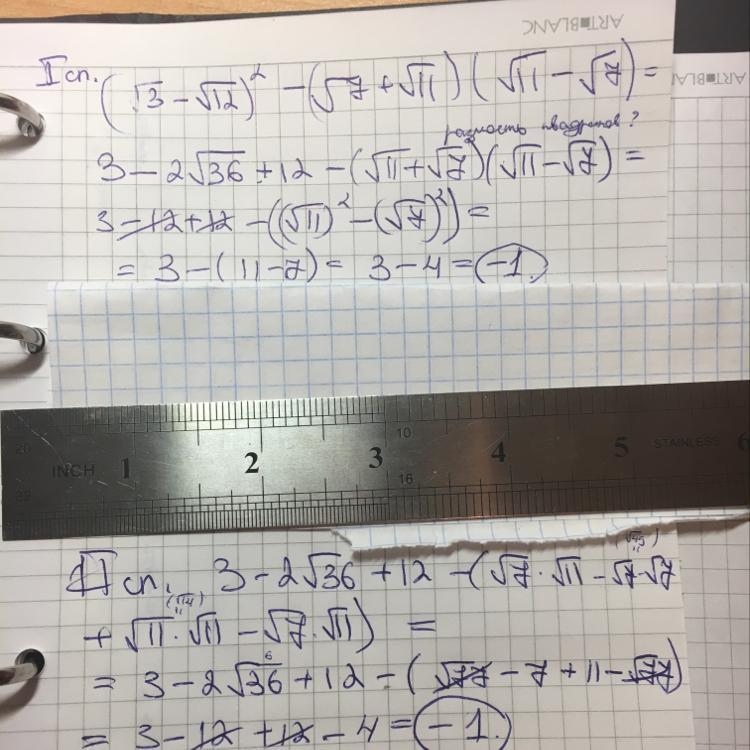 ART■BLANC
ART■BLANC
I сп. (√3 − √12)² − (√7 + √11)(√11 − √7) =
разность квадратов?
3 − 2√36 + 12 − (√11 + √7)(√11 − √7) =
3 − 12 + 12 − ((√11)² − (√7)²) =
= 3 − (11 − 7) = 3 − 4 = −1.
20 INCH 1 2 3 10 4 5 STAINLESS 6
32 16
II сп. 3 − 2√36 + 12 − (√7 · √11 − √7 · √7
+ √11 · √11 − √7 · √11) =
6
= 3 − 2√36 + 12 − (√77 − 7 + 11 − √77)
= 3 − 12 + 12 − 4 = −1.